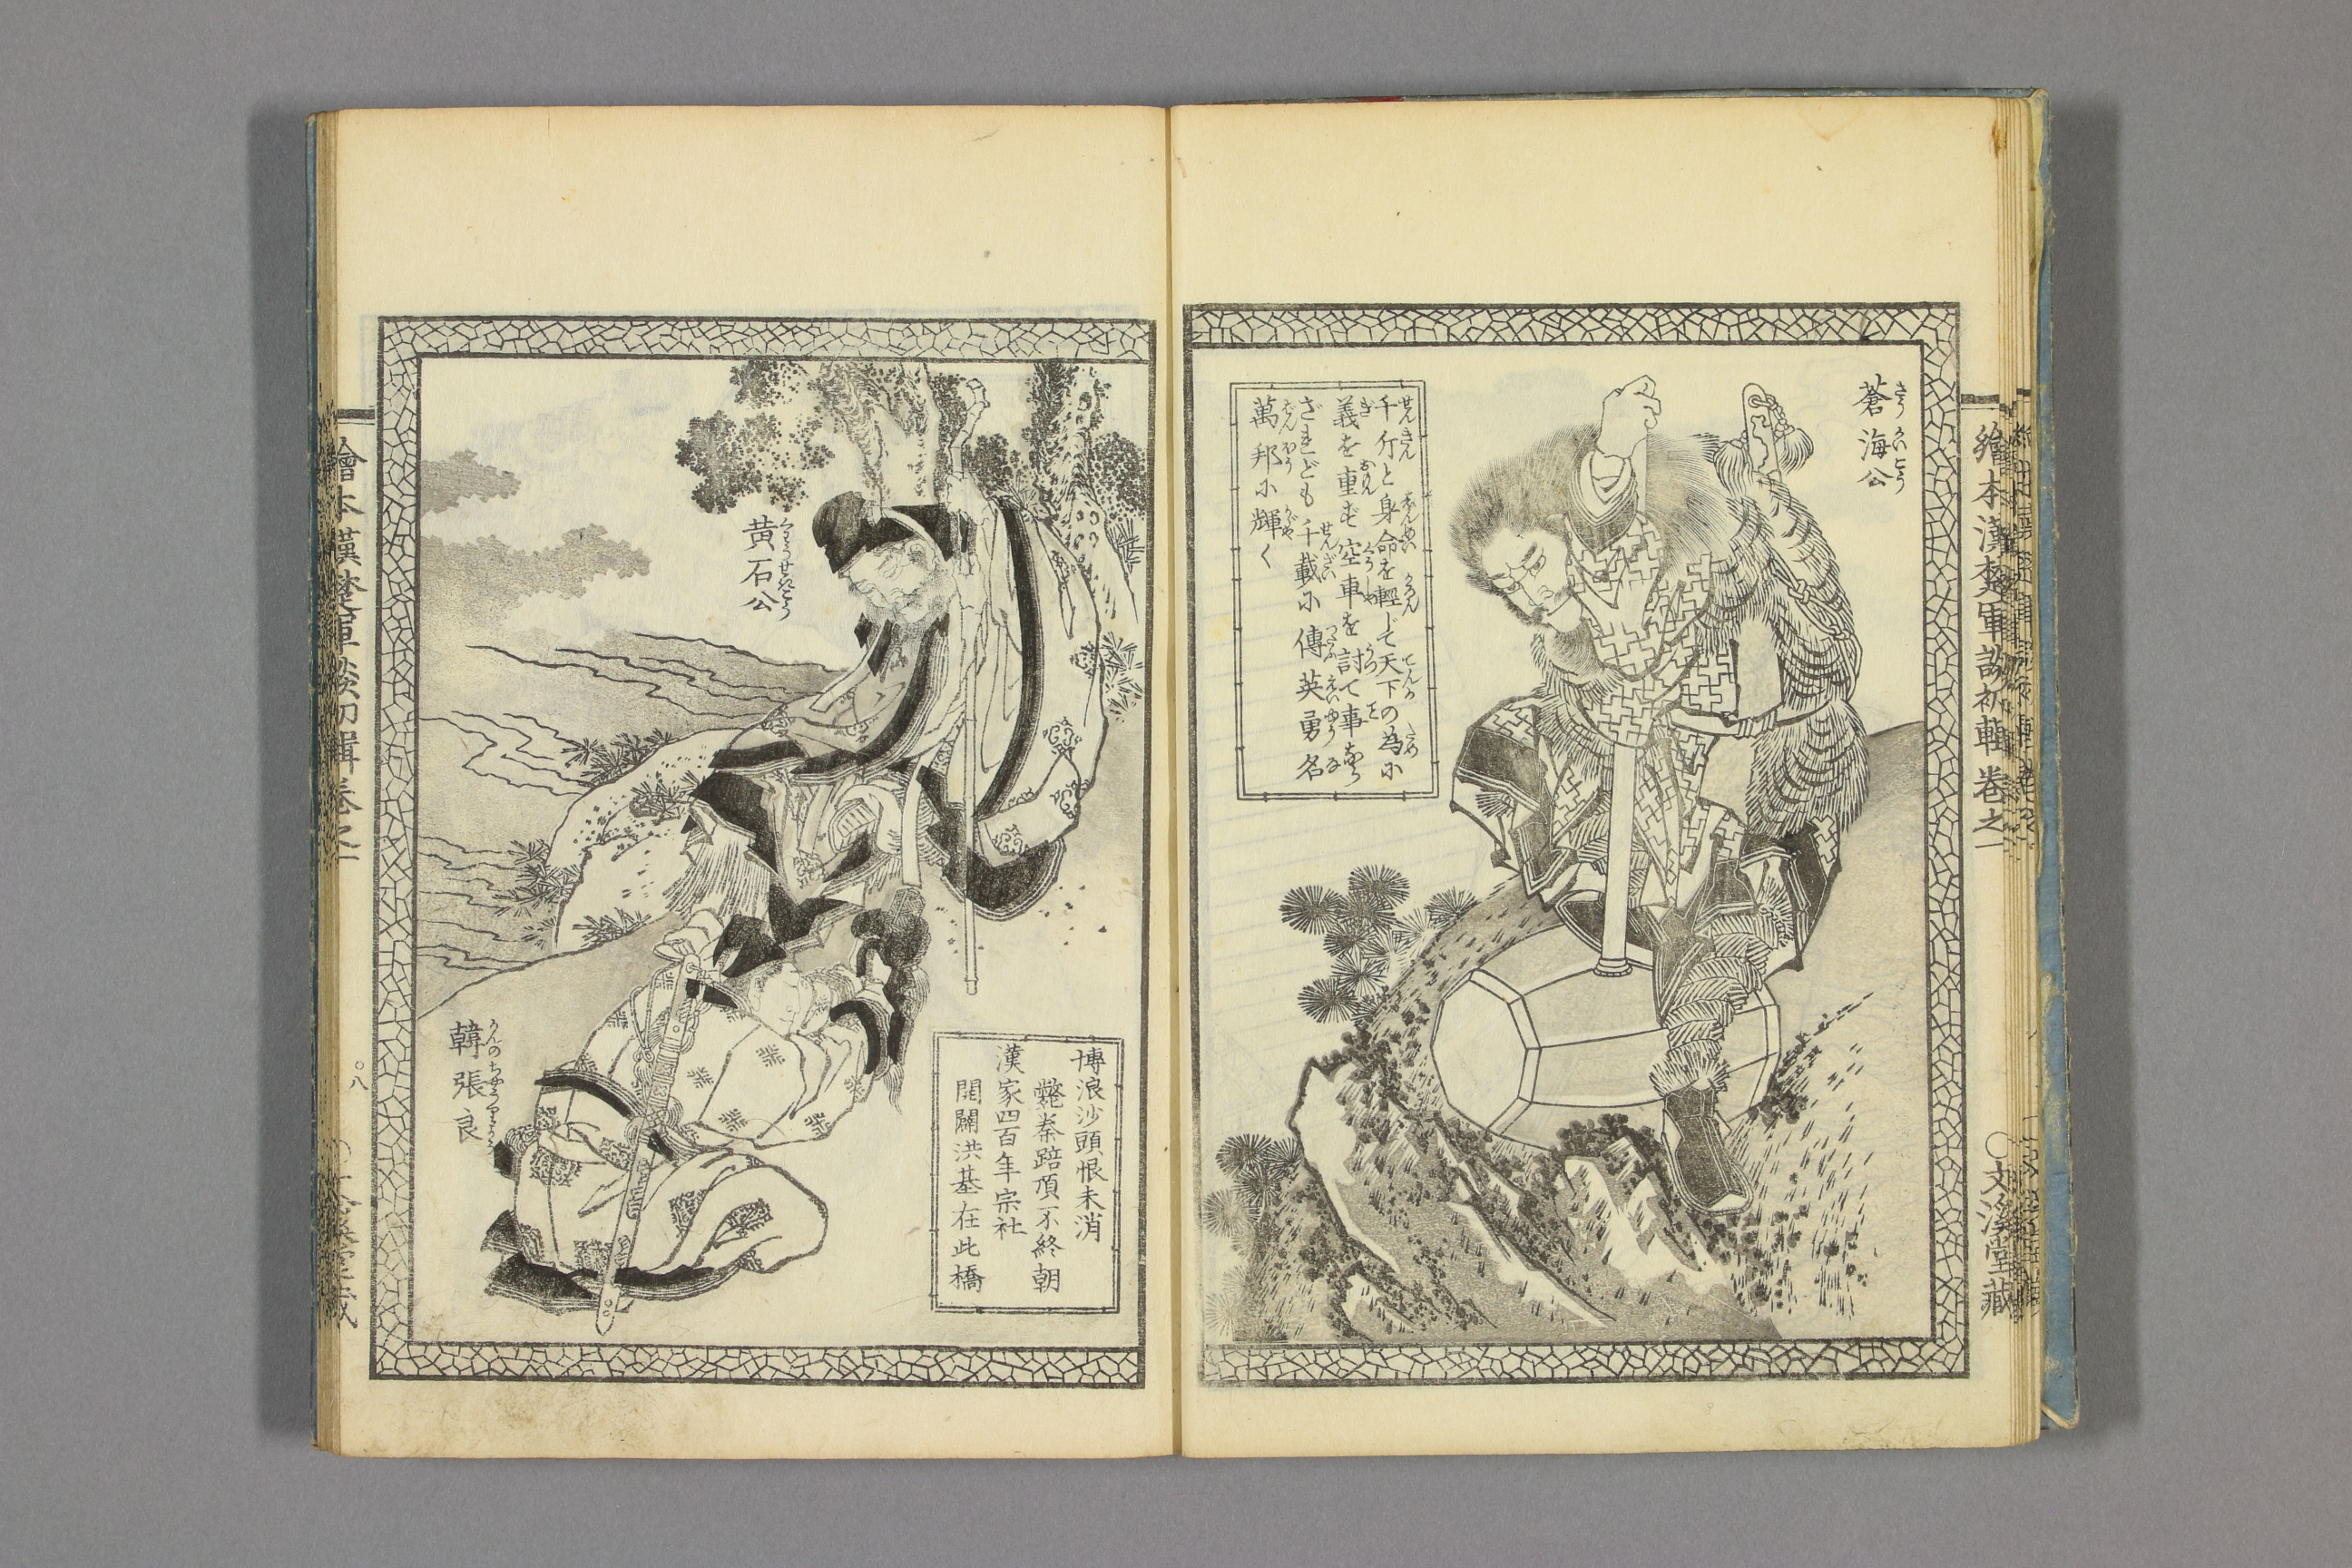 繪本漢楚軍談初輯 卷之一
〇文溪堂藏
蒼海公
千斤と身命を輕じて天下の為に
義を重ず空車を討て事なら
ざれども千載に傳英勇名
萬邦に輝く
黄石公
博浪沙頭恨未消
斃秦踣項不終朝
漢家四百年宗社
開闢洪基在此橋
韓張良
繪本漢楚軍談初輯卷之一
〇八